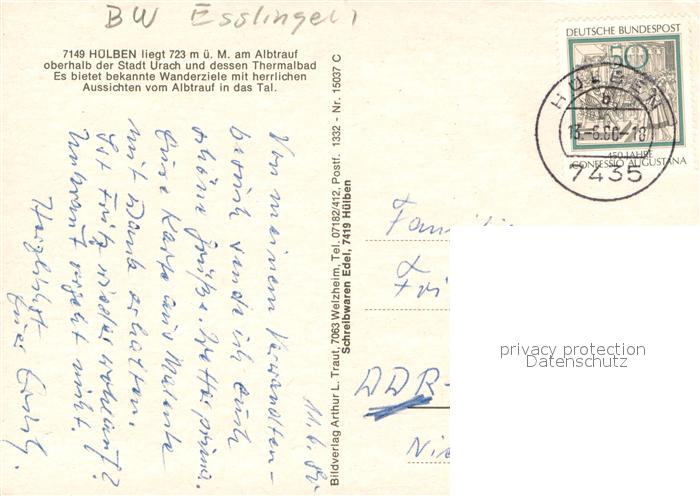 BW Esslingen
7149 HÜLBEN liegt 723 m ü. M. am Albtrauf
oberhalb der Stadt Urach und dessen Thermalbad
Es bietet bekannte Wanderziele mit herrlichen
Aussichten vom Albtrauf in das Tal.
11.6.80
Von meinem Verwandten-
besuch sende ich Euch
schöne Grüße. Wetter prima.
Eure Karte aus Malente
mit Dank erhalten.
Ist Fritz wieder wohlauf?
Unkraut vergeht nicht.
Herzlichst
Euer
Bildverlag Arthur L. Traut, 7063 Welzheim, Tel. 07182/412, Postf. 1332 - Nr. 15037 C
Schreibwaren Edel, 7419 Hülben
DEUTSCHE BUNDESPOST
50
450 JAHRE
CONFESSIO AUGUSTANA
HÜLBEN
b
13.-6.80-18
7435
Familie
Fri
DDR-
Nie
privacy protection
Datenschutz